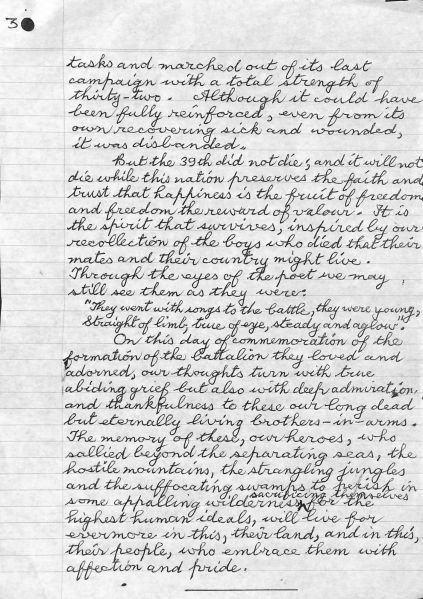 3
tasks and marched out of its last
campaign with a total strength of
thirty-two. Although it could have
been fully reinforced, even from its
own recovering sick and wounded,
it was disbanded.
But the 39th did not die; and it will not
die while this nation preserves the faith and
trust that happiness is the fruit of freedom
and freedom the reward of valour. It is
the spirit that survives, inspired by our
recollection of the boys who died that their
mates and their country might live.
Through the eyes of the poet we may
still see them as they were:
"They went with songs to the battle, they were young,
Straight of limb, true of eye, steady and aglow".
On this day of commemoration of the
formation of the battalion they loved and
adorned, our thoughts turn with true
abiding grief but also with deep admiration
and thankfulness to these our long dead
but eternally living brothers-in-arms.
The memory of these, our heroes, who
sallied beyond the separating seas, the
hostile mountains, the strangling jungles
and the suffocating swamps to perish in
some appalling wilderness sacrificing themselves for the
highest human ideals, will live for
evermore in this, their land, and in this,
their people, who embrace them with
affection and pride.